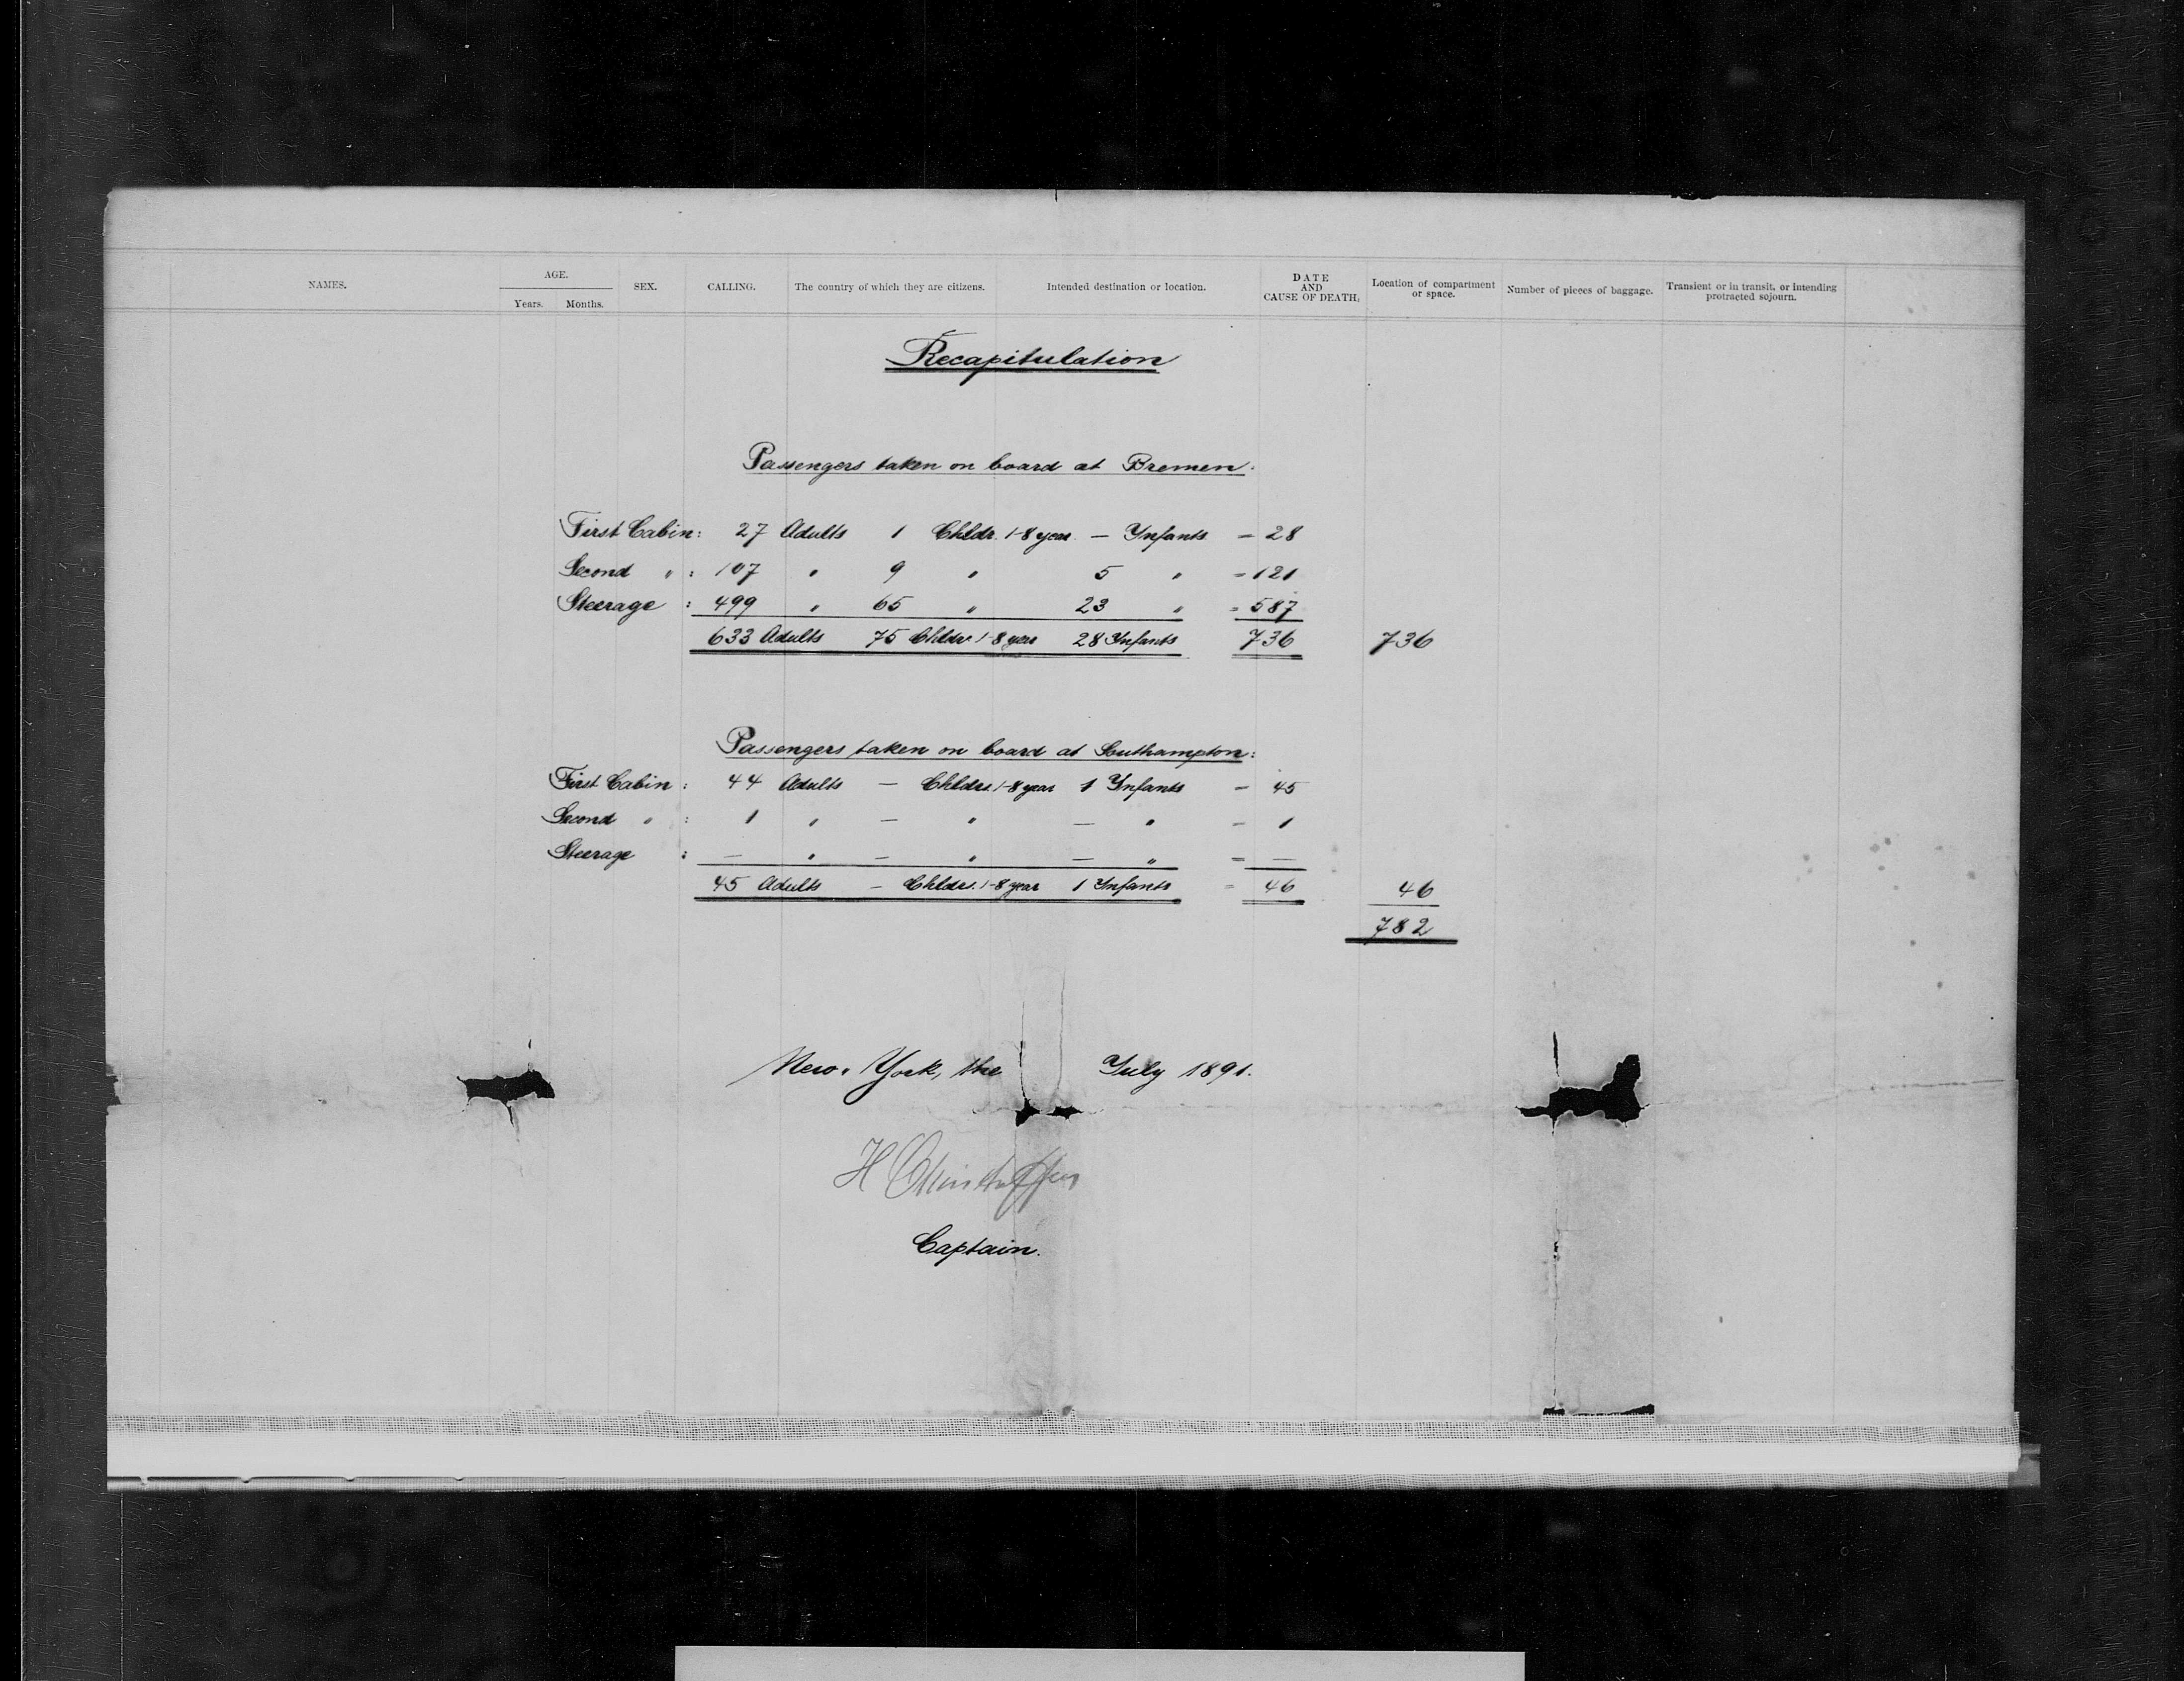 NAMES. AGE. Years. Months. SEX. CALLING. The country of which they are citizens. Intended destination or location. DATE AND CAUSE OF DEATH. Location of compartment or space. Number of pieces of baggage. Transient or in transit, or intending protracted sojourn.
Recapitulation
Passengers taken on board at Bremen.
First Cabin: 27 Adults 1 Childr. 1-8 year. — Infants = 28
Second " : 107 " 9 " 5 " = 121
Steerage : 499 " 65 " 23 " = 587
633 Adults 75 Childr. 1-8 year 28 Infants 736 736
Passengers taken on board at Southampton:
First Cabin : 44 Adults — Childrs. 1-8 year 1 Infants = 45
Second " : 1 " — " — " = 1
Steerage : — " — " — " = —
45 Adults — Childrs. 1-8 year 1 Infants = 46 46
782
New-York, the July 1891.
H
Captain.